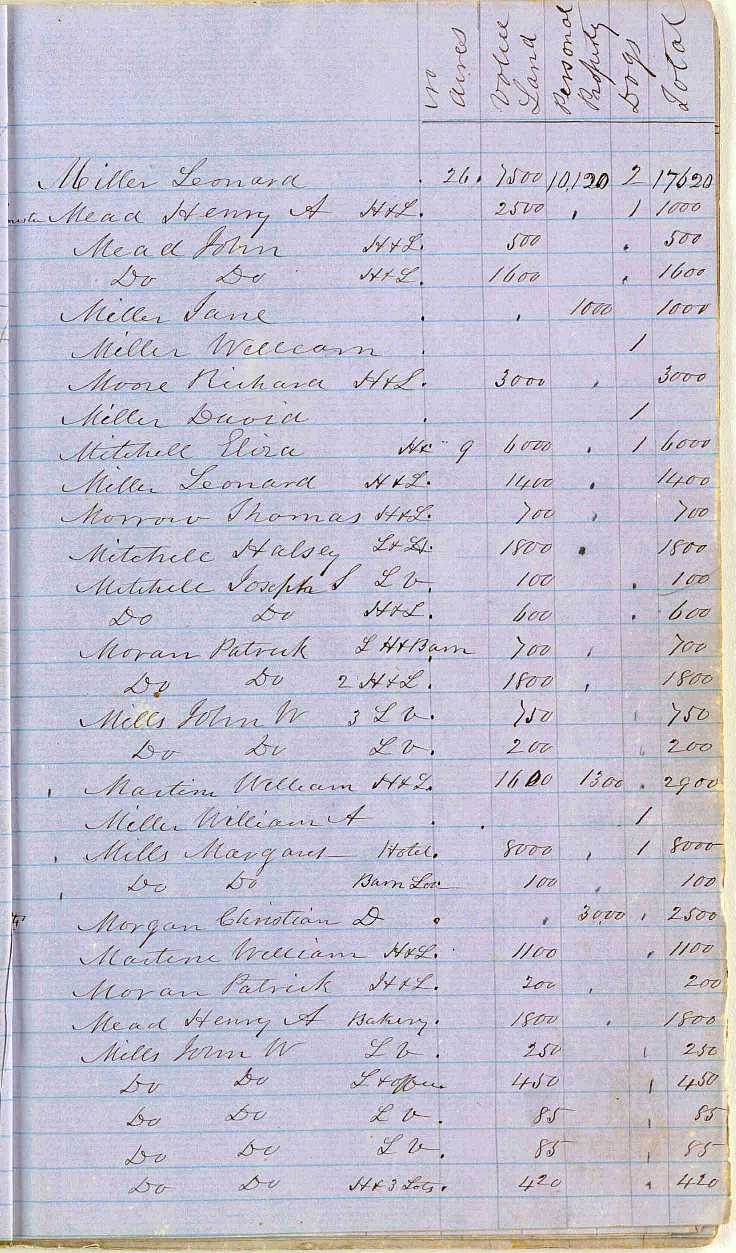 No Acres Value Land Personal Property Dogs Total
Miller Leonard 26. 7500 10,120 2 17620
Mead Henry A H&L. 2500 1 1000
Mead John H&L. 500 500
Do Do H&L. 1600 1600
Miller Jane 1000 1000
Miller William 1
Moore Richard H&L. 3000 3000
Miller David 1
Mitchell Eliza H& 9 6000 1 6000
Miller Leonard H&L. 1400 1400
Morrow Thomas H&L. 700 700
Mitchell Halsey 1800 1800
Mitchell Joseph S L V. 100 100
Do Do H&L. 600 600
Moran Patrick L H&Barn 700 700
Do Do 2 H&L. 1800 1800
Mills John W 3 L V. 750 750
Do Do L V. 200 200
Martine William H&L. 1600 1300 2900
Miller William A 1
Mills Margaret Hotel. 8000 1 8000
Do Do Barn Lot 100 100
Morgan Christian D 3000 2500
Martine William H&L. 1100 1100
Moran Patrick H&L. 200 200
Mead Henry A Bakery. 1800 1800
Mills John W L V. 250 250
Do Do L & office 450 450
Do Do L V. 85 85
Do Do L V. 85 85
Do Do H&3 Lots. 420 420